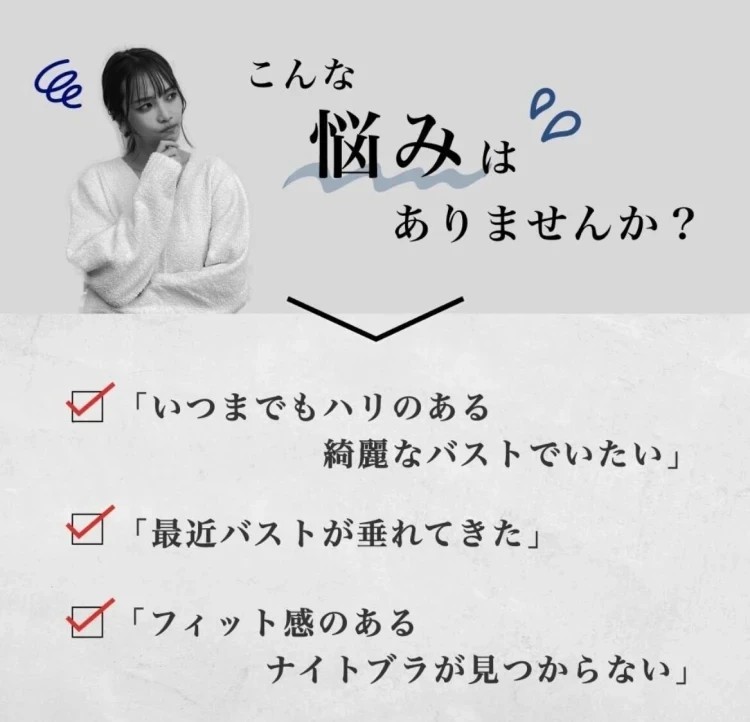 こんな
悩みは
ありませんか？
「いつまでもハリのある
綺麗なバストでいたい」
「最近バストが垂れてきた」
「フィット感のある
ナイトブラが見つからない」